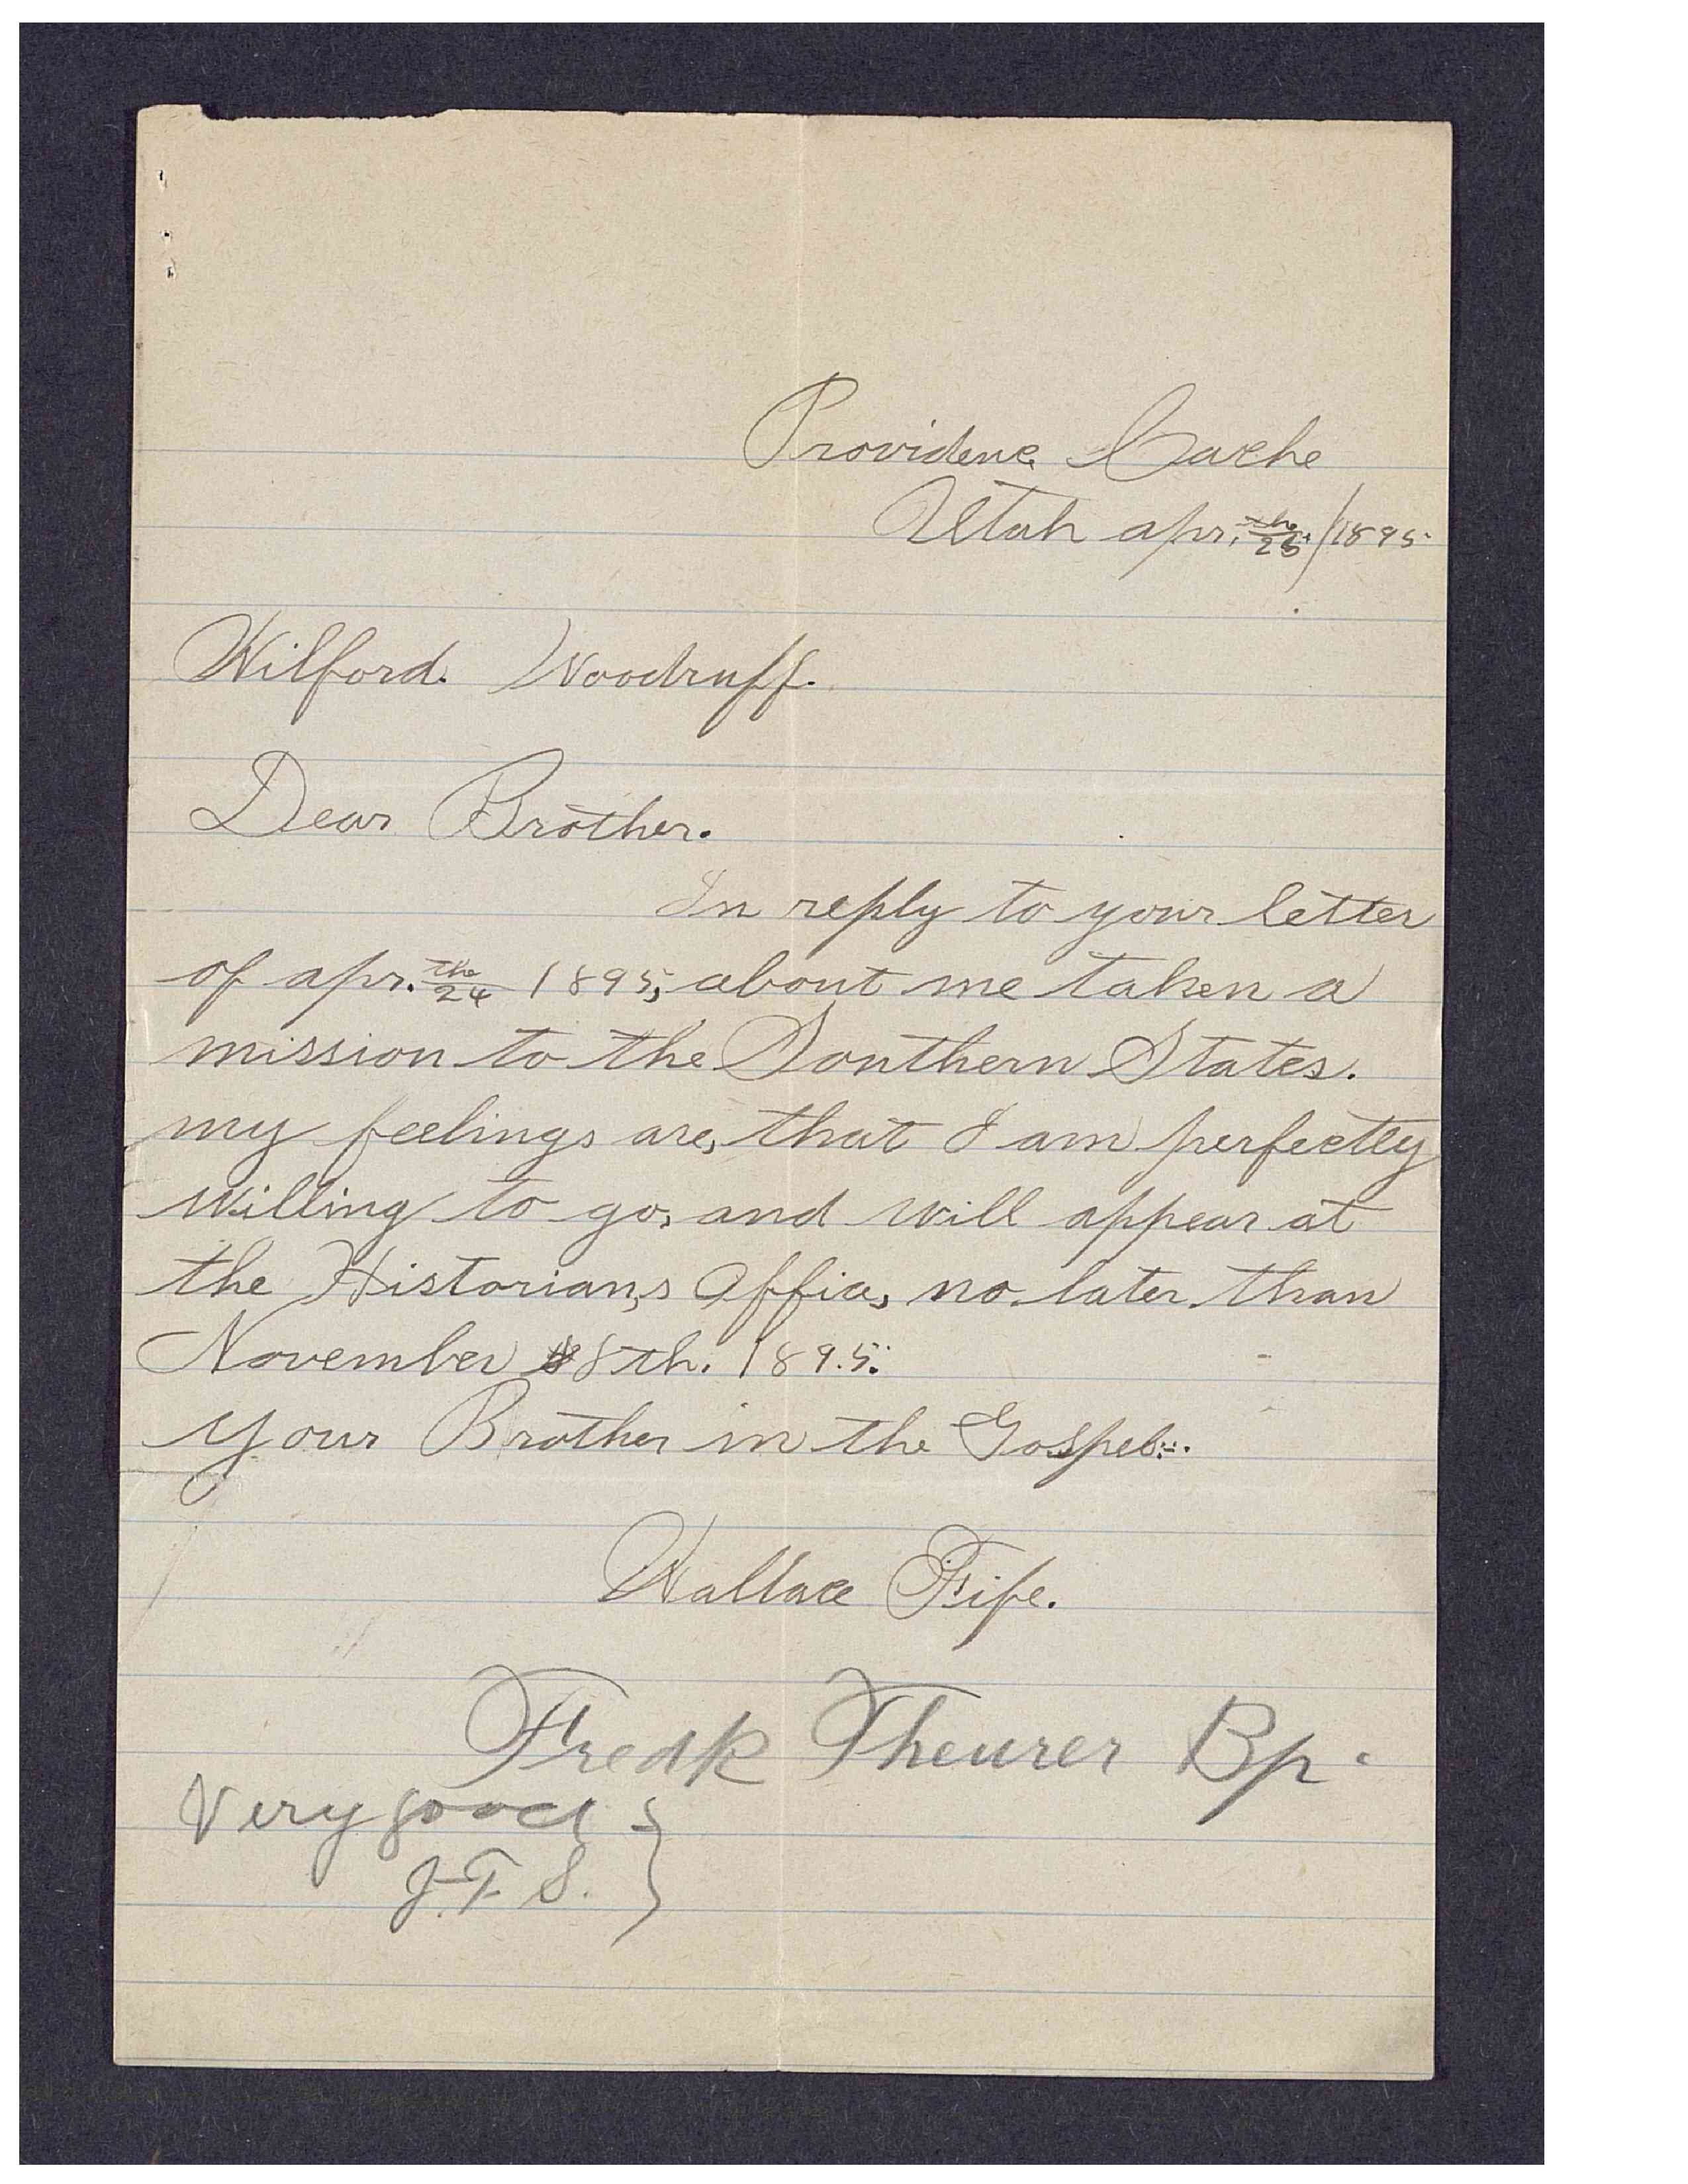 Providence Cache
Utah apr. the 25. / 1895.
Wilford. Woodruff.
Dear Brother.
In reply to your letter
of apr. the 24 1895, about me taken a
mission to the Southern States.
my feelings are, that I am perfectly
willing to go, and will appear at
the Historian,s Office, no later than
November 8th. 1895.
Your Brother in the Gospel.
Wallace Fife.
Fredk Theurer Bp.
Very good }
J. F. S.